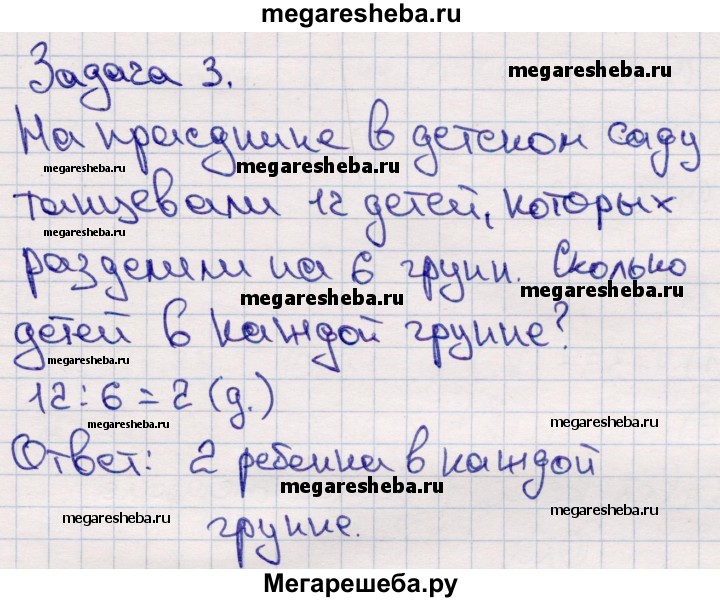 megaresheba.ru
Задача 3.
megaresheba.ru
На празднике в детском саду
megaresheba.ru
megaresheba.ru
танцевали 12 детей, которых
megaresheba.ru
разделили на 6 групп. Сколько
megaresheba.ru
megaresheba.ru
детей в каждой группе?
megaresheba.ru
12 : 6 = 2 (д.)
megaresheba.ru
megaresheba.ru
Ответ: 2 ребенка в каждой
megaresheba.ru
megaresheba.ru
megaresheba.ru
группе.
Мегарешеба.ру